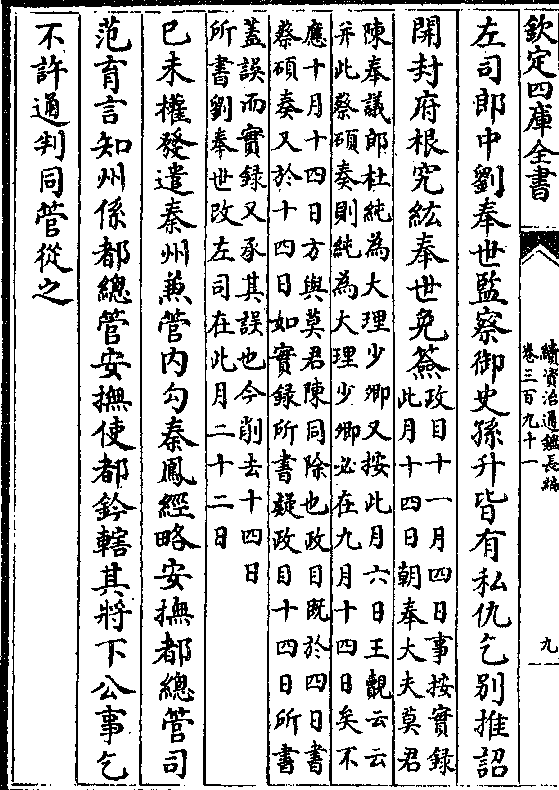 欽定四庫全書
續資治通鑑長編
卷三百九十一
九
左司郎中劉奉世監察御史孫升皆有私仇乞别推詔
開封府根究紘奉世免簽
政目十一月四日事按實録
此月十四日朝奉大夫莫君
陳奉議郎杜純為大理少卿又按此月六日王觀云云
并此蔡碩奏則純為大理少卿必在九月十四日矣不
應十月十四日方與莫君陳同除也政目既於四日書
蔡碩奏又於十四日如實録所書疑政目十四日所書
蓋誤而實録又承其誤也今削去十四日
所書劉奉世改左司在此月二十二日
已未權發遣秦州兼管内勾秦鳳經略安撫都總管司
范育言知州係都總管安撫使都鈐轄其將下公事乞
不許通判同管從之